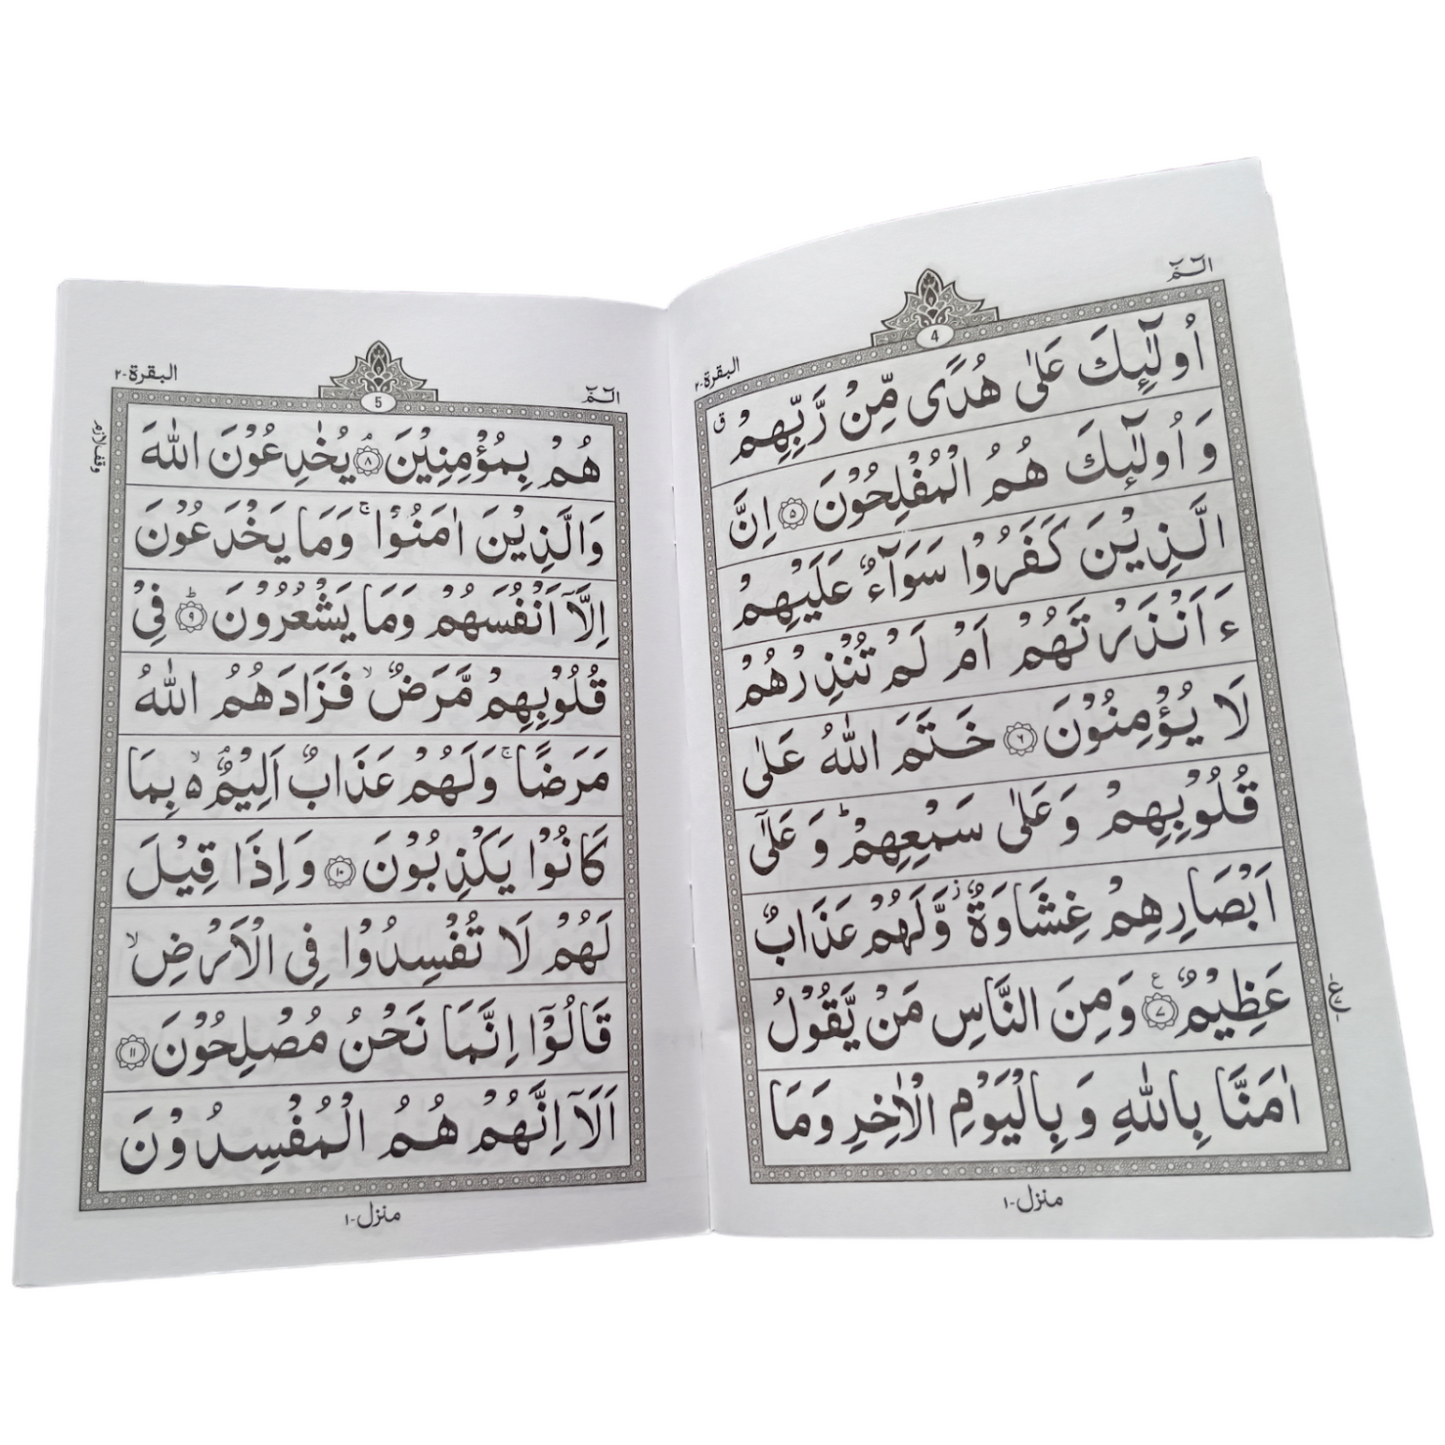 الٓمّٓ
البقرة-٢
4
اُولٰٓئِكَ عَلٰى هُدًى مِّنْ رَّبِّهِمْ ق
وَ اُولٰٓئِكَ هُمُ الْمُفْلِحُوْنَ ۝٥ اِنَّ
الَّذِيْنَ كَفَرُوْا سَوَآءٌ عَلَيْهِمْ
ءَ اَنْذَرْتَهُمْ اَمْ لَمْ تُنْذِرْهُمْ
لَا يُؤْمِنُوْنَ ۝٦ خَتَمَ اللّٰهُ عَلٰى
قُلُوْبِهِمْ وَ عَلٰى سَمْعِهِمْ ؕ وَ عَلٰٓى
اَبْصَارِهِمْ غِشَاوَةٌ ؗ وَّلَهُمْ عَذَابٌ
عَظِيْمٌ ۝٧ ع وَمِنَ النَّاسِ مَنْ يَّقُوْلُ
اٰمَنَّا بِاللّٰهِ وَ بِالْيَوْمِ الْاٰخِرِ وَمَا
منزل-١
الٓمّٓ
البقرة-٢
5
وقف لازم
هُمْ بِمُؤْمِنِيْنَ ۘ ۝٨ يُخٰدِعُوْنَ اللّٰهَ
وَالَّذِيْنَ اٰمَنُوْا ۚ وَمَا يَخْدَعُوْنَ
اِلَّآ اَنْفُسَهُمْ وَمَا يَشْعُرُوْنَ ؕ ۝٩ فِيْ
قُلُوْبِهِمْ مَّرَضٌ ۙ فَزَادَهُمُ اللّٰهُ
مَرَضًا ۚ وَلَهُمْ عَذَابٌ اَلِيْمٌۢ ۙ۵ بِمَا
كَانُوْا يَكْذِبُوْنَ ۝١٠ وَاِذَا قِيْلَ
لَهُمْ لَا تُفْسِدُوْا فِي الْاَرْضِ ۙ
قَالُوْٓا اِنَّمَا نَحْنُ مُصْلِحُوْنَ ۝١١
اَلَآ اِنَّهُمْ هُمُ الْمُفْسِدُوْنَ
منزل-١